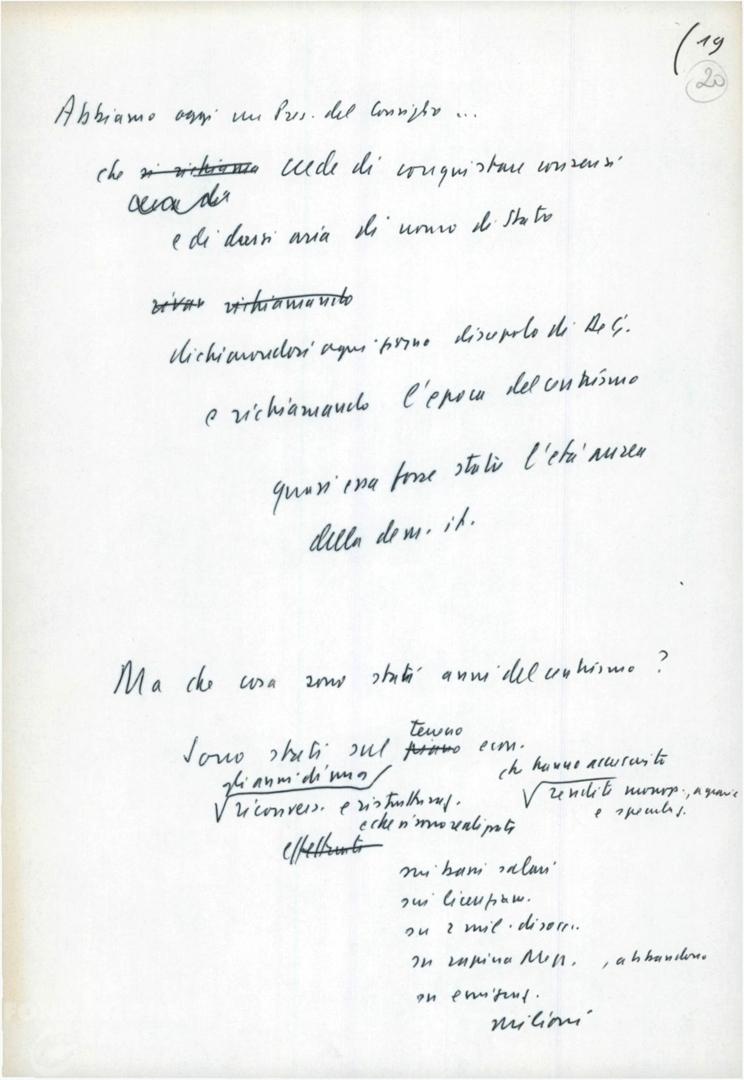 (19
20
Abbiamo oggi un Pres. del Consiglio ...
che si richiama crede di conquistare consensi
e di darsi aria di uomo di Stato
richiamando
dichiarandosi ogni giorno discepolo di De G.
e richiamando l'epoca del centrismo
quasi essa fosse stata l'età aurea
della dem. it.
Ma che cosa sono stati anni del centrismo?
terreno
Sono stati sul piano econ.
gli anni di una
che hanno accresciuto
riconvers. e ristrutturaz.
rendite monop., agrarie
e speculaz.
e che si sono realizzate
effettuate
sui bassi salari
sui licenziam.
su 2 mil. disocc.
su rapina Mezz., abbandono
su emigraz.
milioni